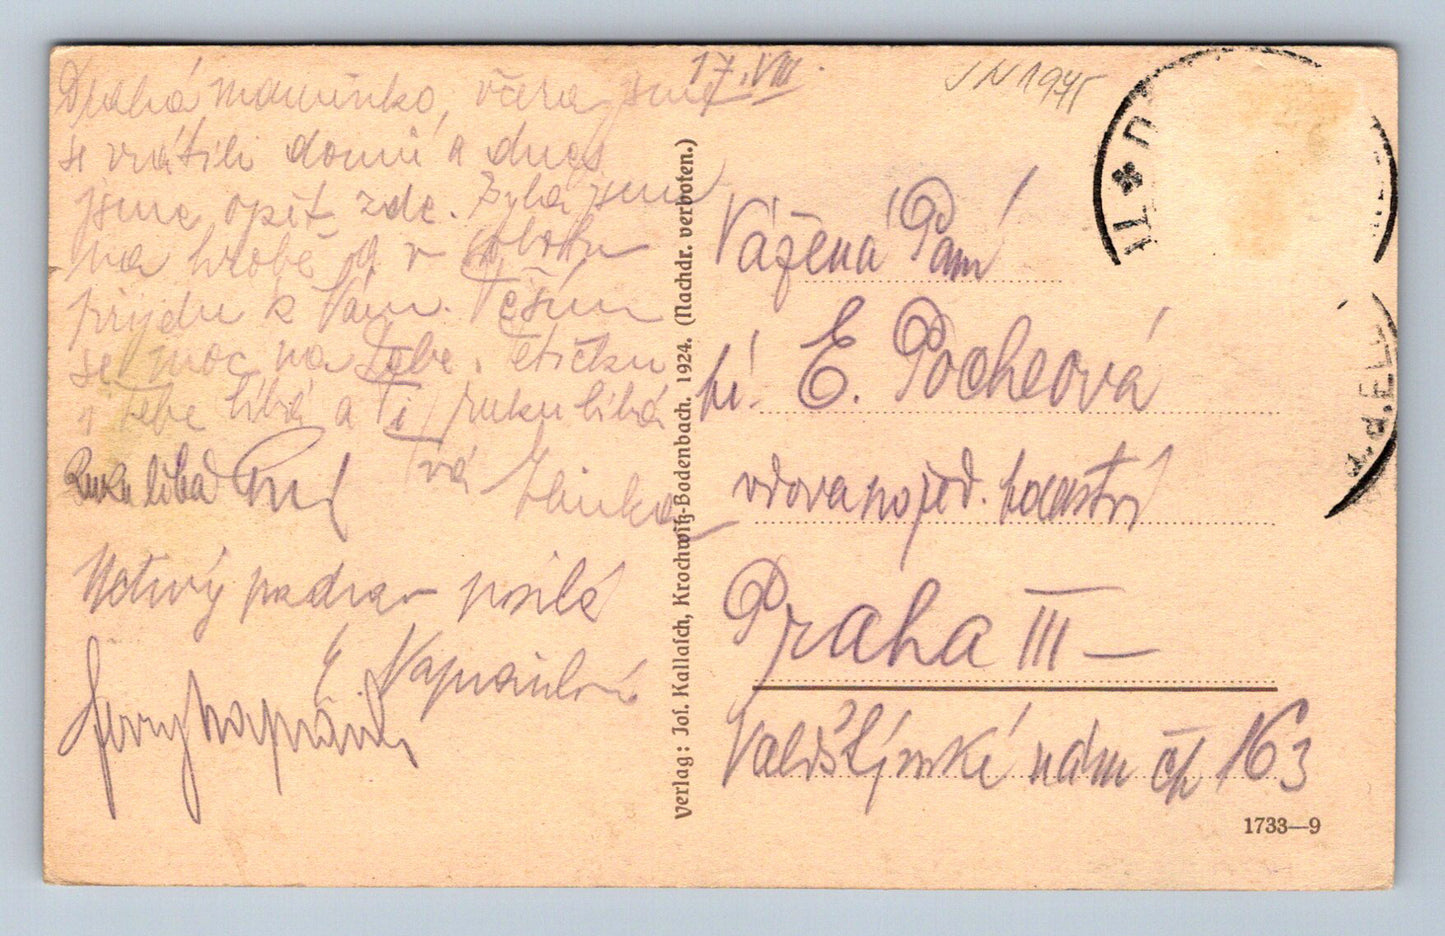 17.VIII.
Drahá maminko, včera jsme
se vrátili domů a dnes
jsme opět zde. Byla jsem
na hrobě a v sobotu
přijedu k Vám. Těším
se moc na Tebe. Tetičku
i Tebe líbá a Ti ruku líbá
Tvá
Ruku líbá
Uctivý pozdrav posílá
E. Napravilová
JN 1945
Vážená Paní
E. Pocheová
vdova po řed.
Praha III –
Valdštýnské nám čp 163
verlag: Jos. Kallasch, Krochwitz-Bodenbach. 1924. (Nachdr. verboten.)
1733—9